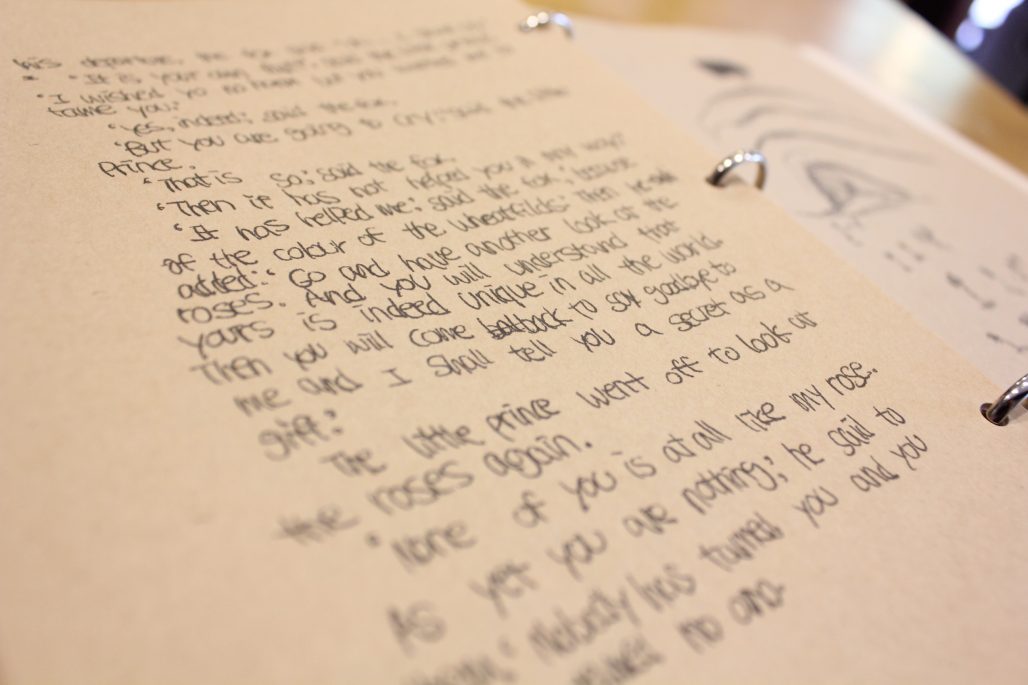 his departure, the fox
"It is your own fault," said the little prince.
"I wished you no harm but you wanted me to
tame you."
"Yes, indeed," said the fox.
"But you are going to cry," said the little
Prince.
"That is so," said the fox.
"Then it has not helped you in any way?"
"It has helped me," said the fox, "because
of the colour of the wheatfilds." Then he said
added: "Go and have another look at the
roses. And you will understand that
yours is indeed unique in all the world.
Then you will come back to say goodbye to
me and I shall tell you a secret as a
gift."
The little prince went off to look at
the roses again.
"None of you is at all like my rose.
As yet you are nothing," he said to
them. "Nobody has tamed you and you
no one.